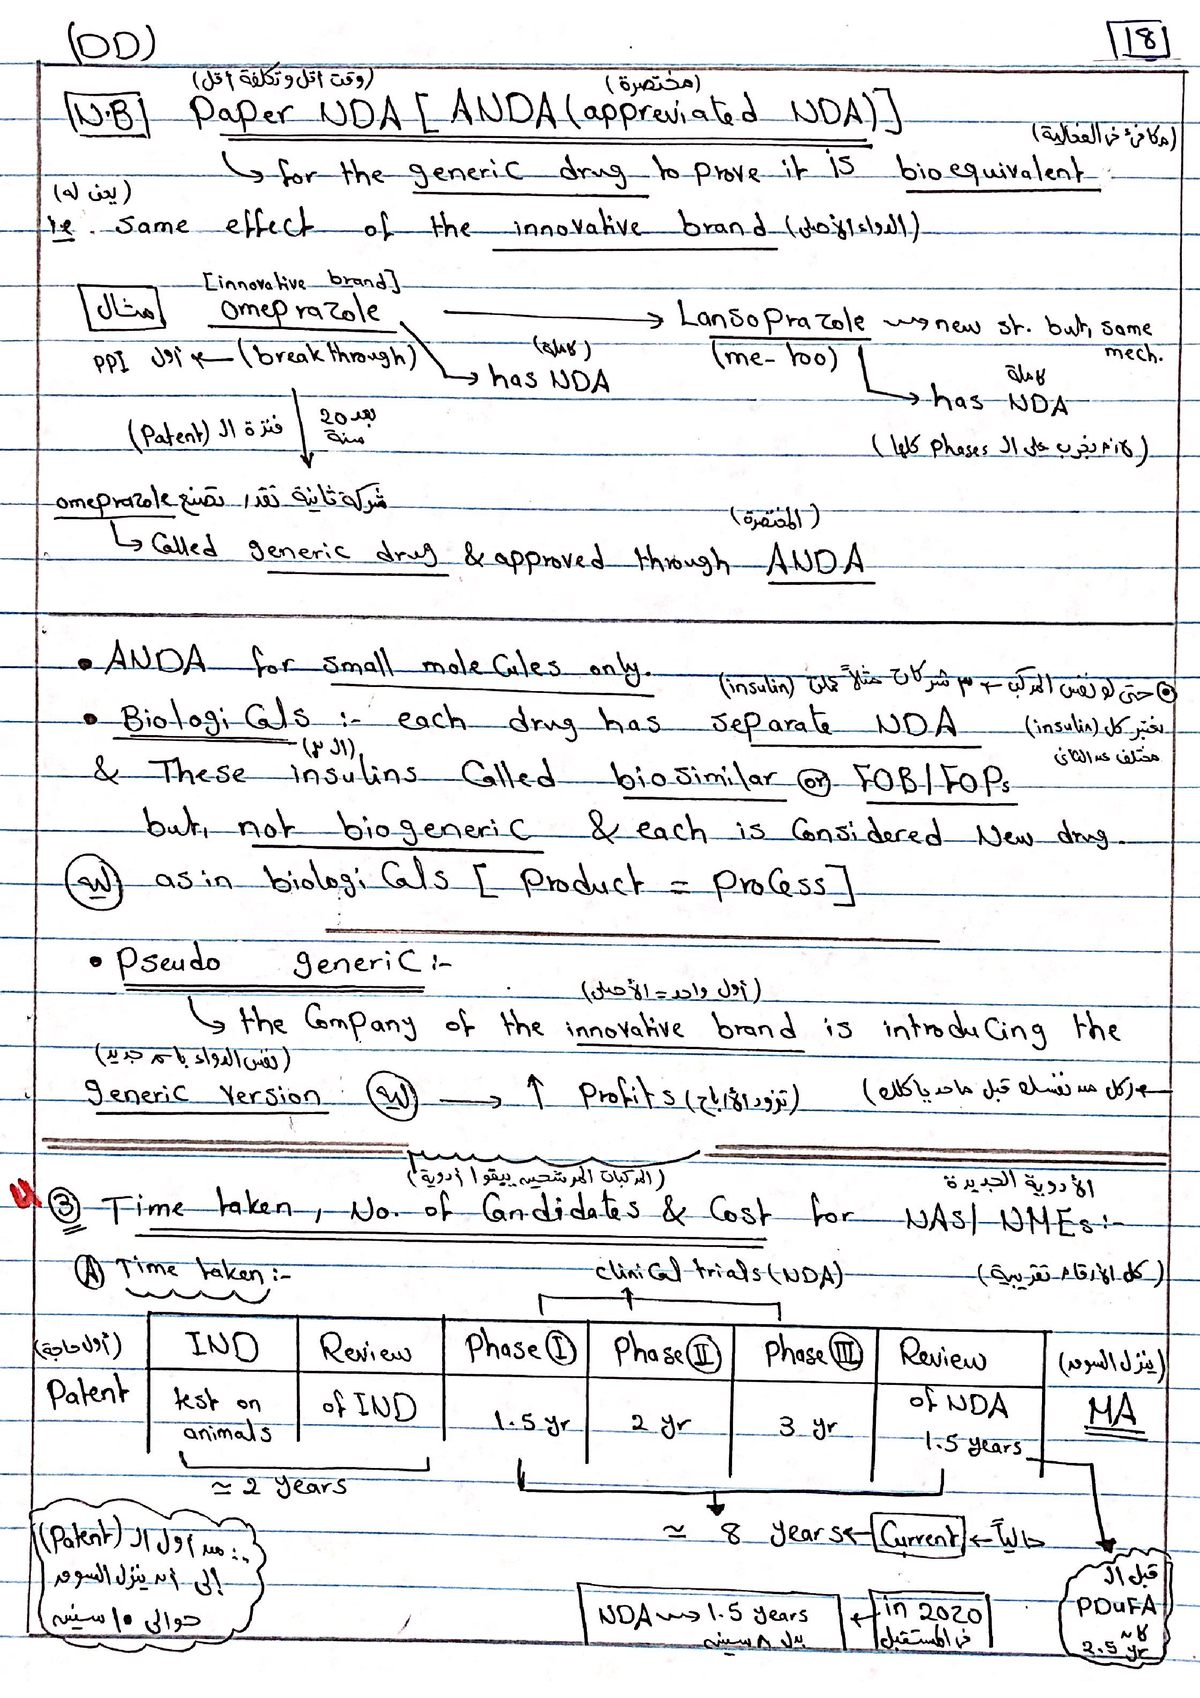 (DD)
18
(وقت أقل وتكلفة أقل)
(مختصرة)
N.B Paper NDA [ANDA (appreviated NDA)]
(مكافئ في الفعالية)
↳ for the generic drug to prove it is bioequivalent
(يعني له)
i.e. same effect of the innovative brand (الدواء الأصلي)
[innovative brand]
مثال omeprazole → Lansoprazole ⇝ new st. but, same mech.
أول PPI ← (breakthrough)
(كاملة)
↳ has NDA
(me-too)
كاملة
↳ has NDA
فترة الـ (Patent)
بعد 20 سنة
(لازم يجرب على الـ Phases كلها)
شركة ثانية تقدر تصنع omeprazole
(المختصرة)
↳ Called generic drug & approved through ANDA
• ANDA for small molecules only.
حتى لو نفس المركب ← 3 شركات مثلاً عملت (insulin)
• Biologicals :- each drug has separate NDA
يعتبر كل (insulin)
مختلف عن الثاني
(الـ 3)
& These insulins Called biosimilar or FOB/FOPs
but, not biogeneric & each is Considered New drug.
لأن as in biologicals [Product = Process]
• Pseudo generic :-
(أول واحد = الأصلي)
↳ the Company of the innovative brand is introducing the
(نفس الدواء باسم جديد)
generic version → ↑ Profits (تزود الأرباح)
(كل من نفسك قبل ما حد ياكلك)
(المركبات المرشحين يبقوا أدوية)
الأدوية الجديدة
③ Time taken, No. of Candidates & Cost for NAS/NMEs :-
Ⓐ Time taken :-
clinical trials (NDA)
(كل الأرقام تقريبية)
(أول حاجة) IND Review Phase Ⅰ Phase Ⅱ Phase Ⅲ Review (ينزل السوق)
Patent test on animals of IND 1.5 yr 2 yr 3 yr of NDA 1.5 years MA
≃ 2 years
≃ 8 years ← Current ← حالياً
∴ من أول الـ (Patent)
إلى أن ينزل السوق
حوالي 10 سنين
NDA ⇝ 1.5 years
بدل 8 سنين
← in 2020
في المستقبل
قبل الـ
PDuFA
كان
2.5 yr